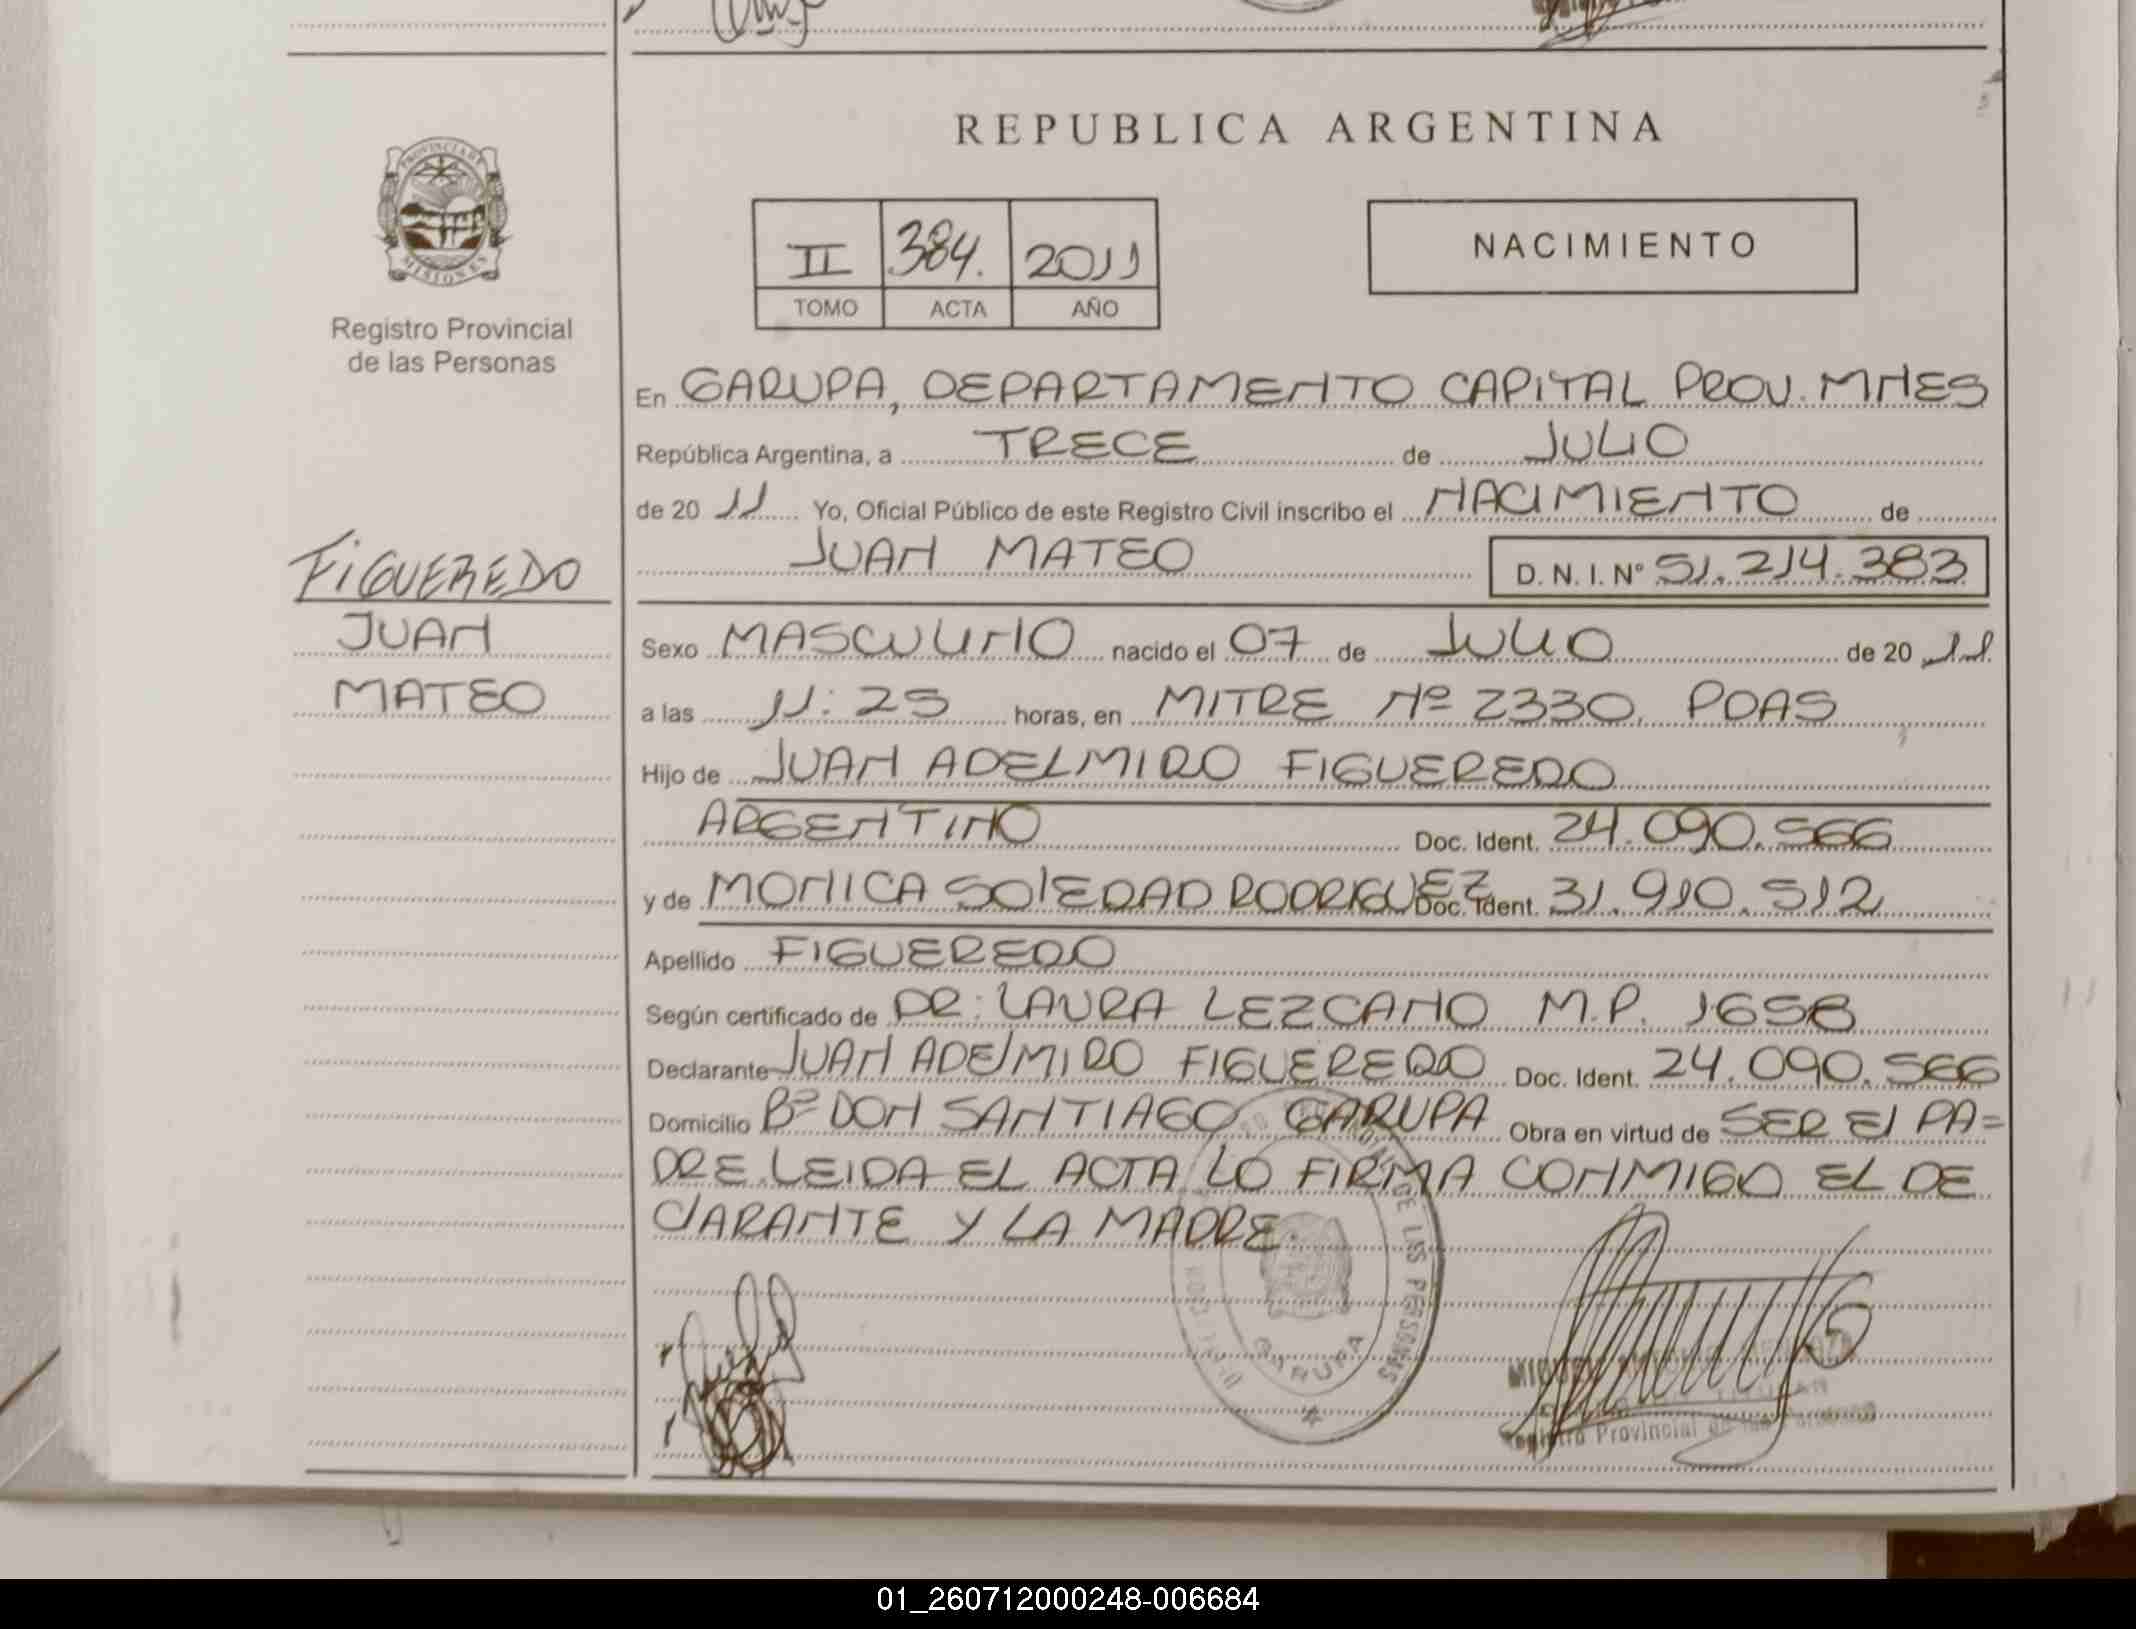 PROVINCIA DE
MISIONES
Registro Provincial
de las Personas
FIGUEREDO
JUAN
MATEO
REPUBLICA ARGENTINA
II 384. 2011
TOMO ACTA AÑO
NACIMIENTO
En GARUPA, DEPARTAMENTO CAPITAL PROV. MNES
República Argentina, a TRECE de JULIO
de 20 11 Yo, Oficial Público de este Registro Civil inscribo el NACIMIENTO de
JUAN MATEO D. N. I. Nº 51.214.383
Sexo MASCULINO nacido el 07 de JULIO de 20 11.
a las 11:25 horas, en MITRE Nº 2330. PDAS
Hijo de JUAN ADELMIRO FIGUEREDO
ARGENTINO Doc. Ident. 24.090.566
y de MONICA SOLEDAD RODRIGUEZ Doc. Ident. 31.910.512
Apellido FIGUEREDO
Según certificado de DR: LAURA LEZCANO M.P. 1658
Declarante JUAN ADELMIRO FIGUEREDO Doc. Ident. 24.090.566
Domicilio Bº DON SANTIAGO GARUPA Obra en virtud de SER El PA=
DRE. LEIDA EL ACTA LO FIRMA CONMIGO EL DE
CLARANTE Y LA MADRE.
DE LAS PERSONAS
GARUPA
Registro Provincial de las Personas
01_260712000248-006684